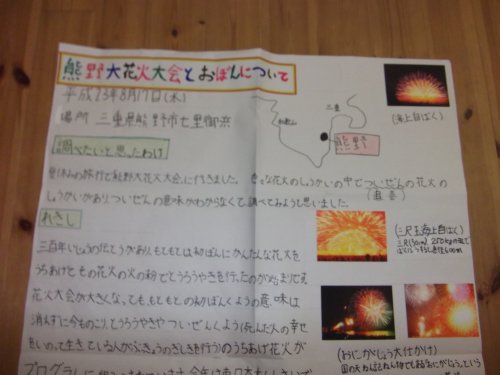 熊野大花火大会とおぼんについて
平成23年8月17日(水)
場所 三重県熊野市七里御浜
三重
和歌山
熊野
(海上自ばく)
調べたいと思ったわけ
夏休みの旅行で熊野大花火大会に行きました。 色々な花火のしょうかいの中でついぜんの花火の
(追善)
しょうかいがあり、ついぜんの意味がわからなくて、調べてみようと思いました。
れきし
三百年いじょうの伝とうがあり、もともとは初ぼんにかんたんな花火を
うちあげてその花火の火の粉でとうろうやきを行ったのが始まりです。
花火大会が大きくなっても、もともとの初ぼんくようの意味は
消えずに今ものこり、とうろうやきや ついぜんくよう(死んだ人の幸せ
をいのって生きている人がぶきょうのぎしきを行う)のうちあげ花火が
(三尺玉海上自ばく)
三尺(90cm) 250kgの玉で
ばくはつすると直径600m
(おにがじょう大仕掛け)